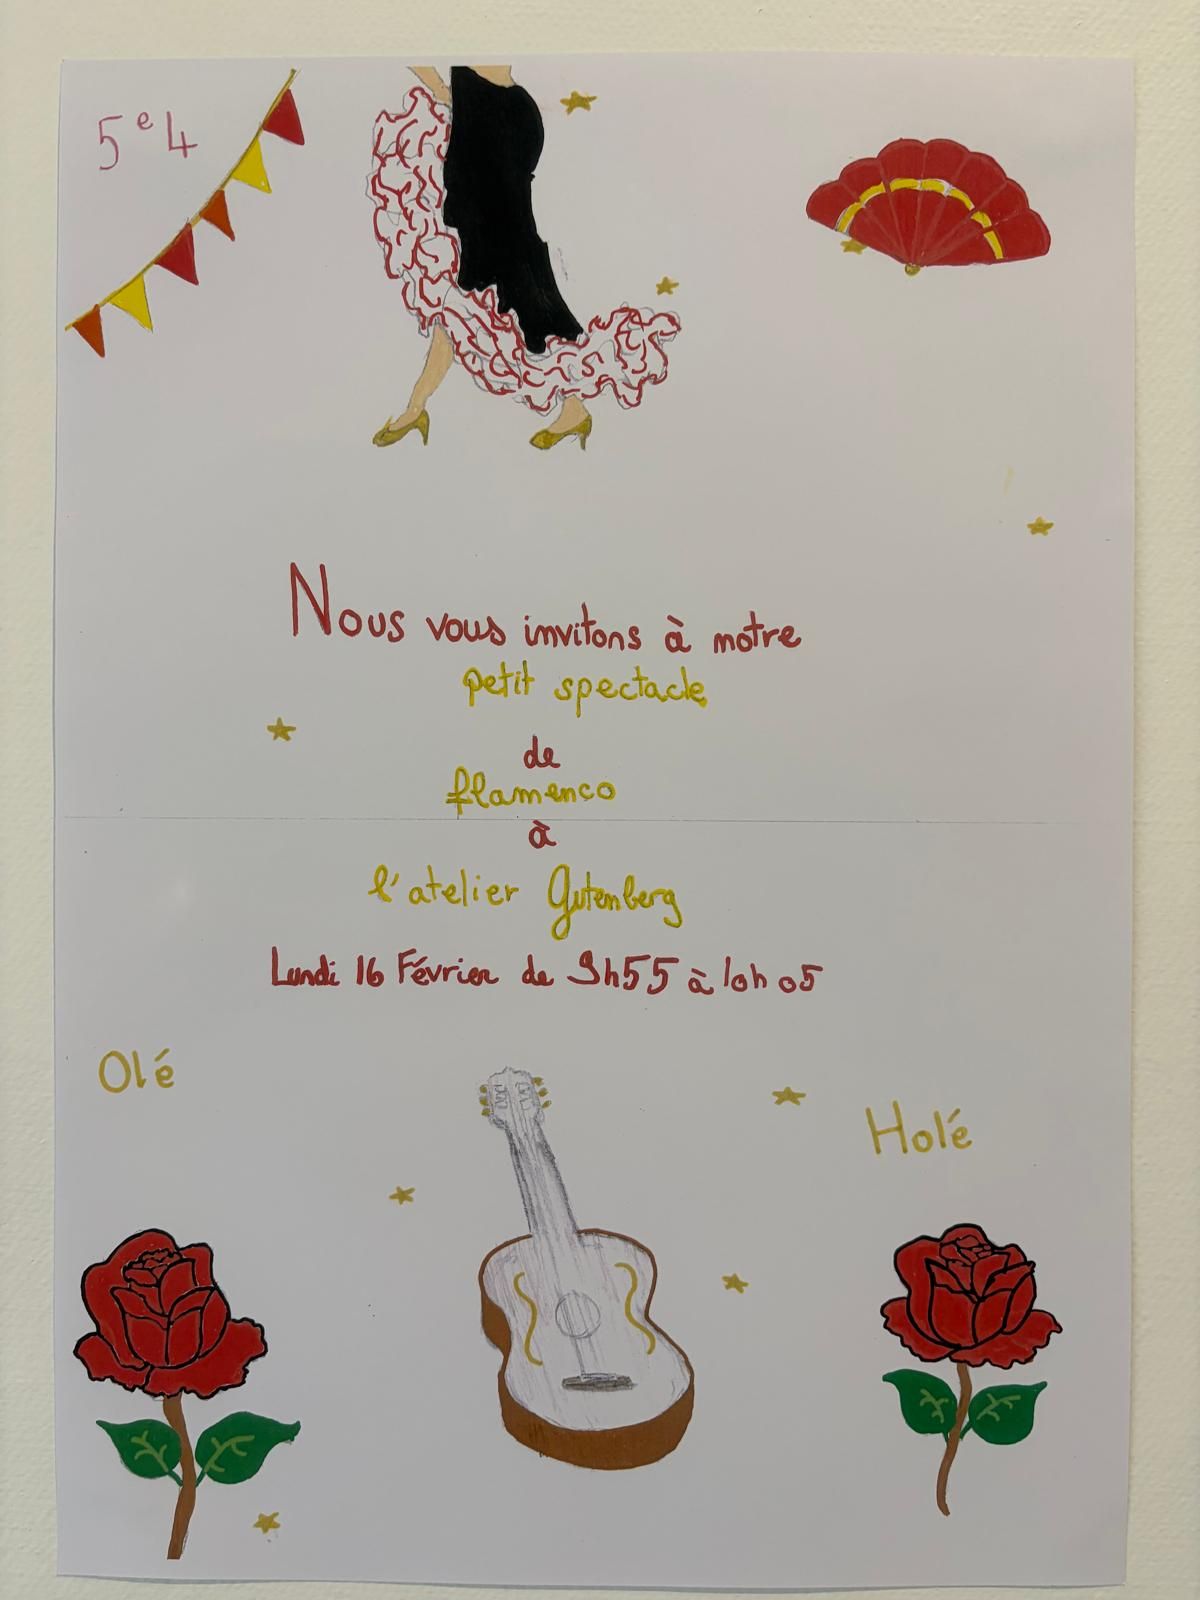 5e4
Nous vous invitons à notre
petit spectacle
de
flamenco
à
l'atelier Gutenberg
Lundi 16 Février de 9h55 à 10h05
Olé
Holé